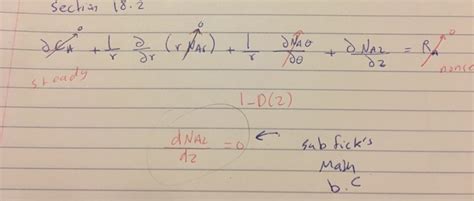 Section 18.2
∂C_A + 1/r ∂/∂r (r N_Ar) + 1/r ∂N_Aθ/∂θ + ∂N_Az/∂z = R_A
0 0 0
steady
1-D(z)
dN_Az/dz = 0 ← sub fick's
Math
b.C